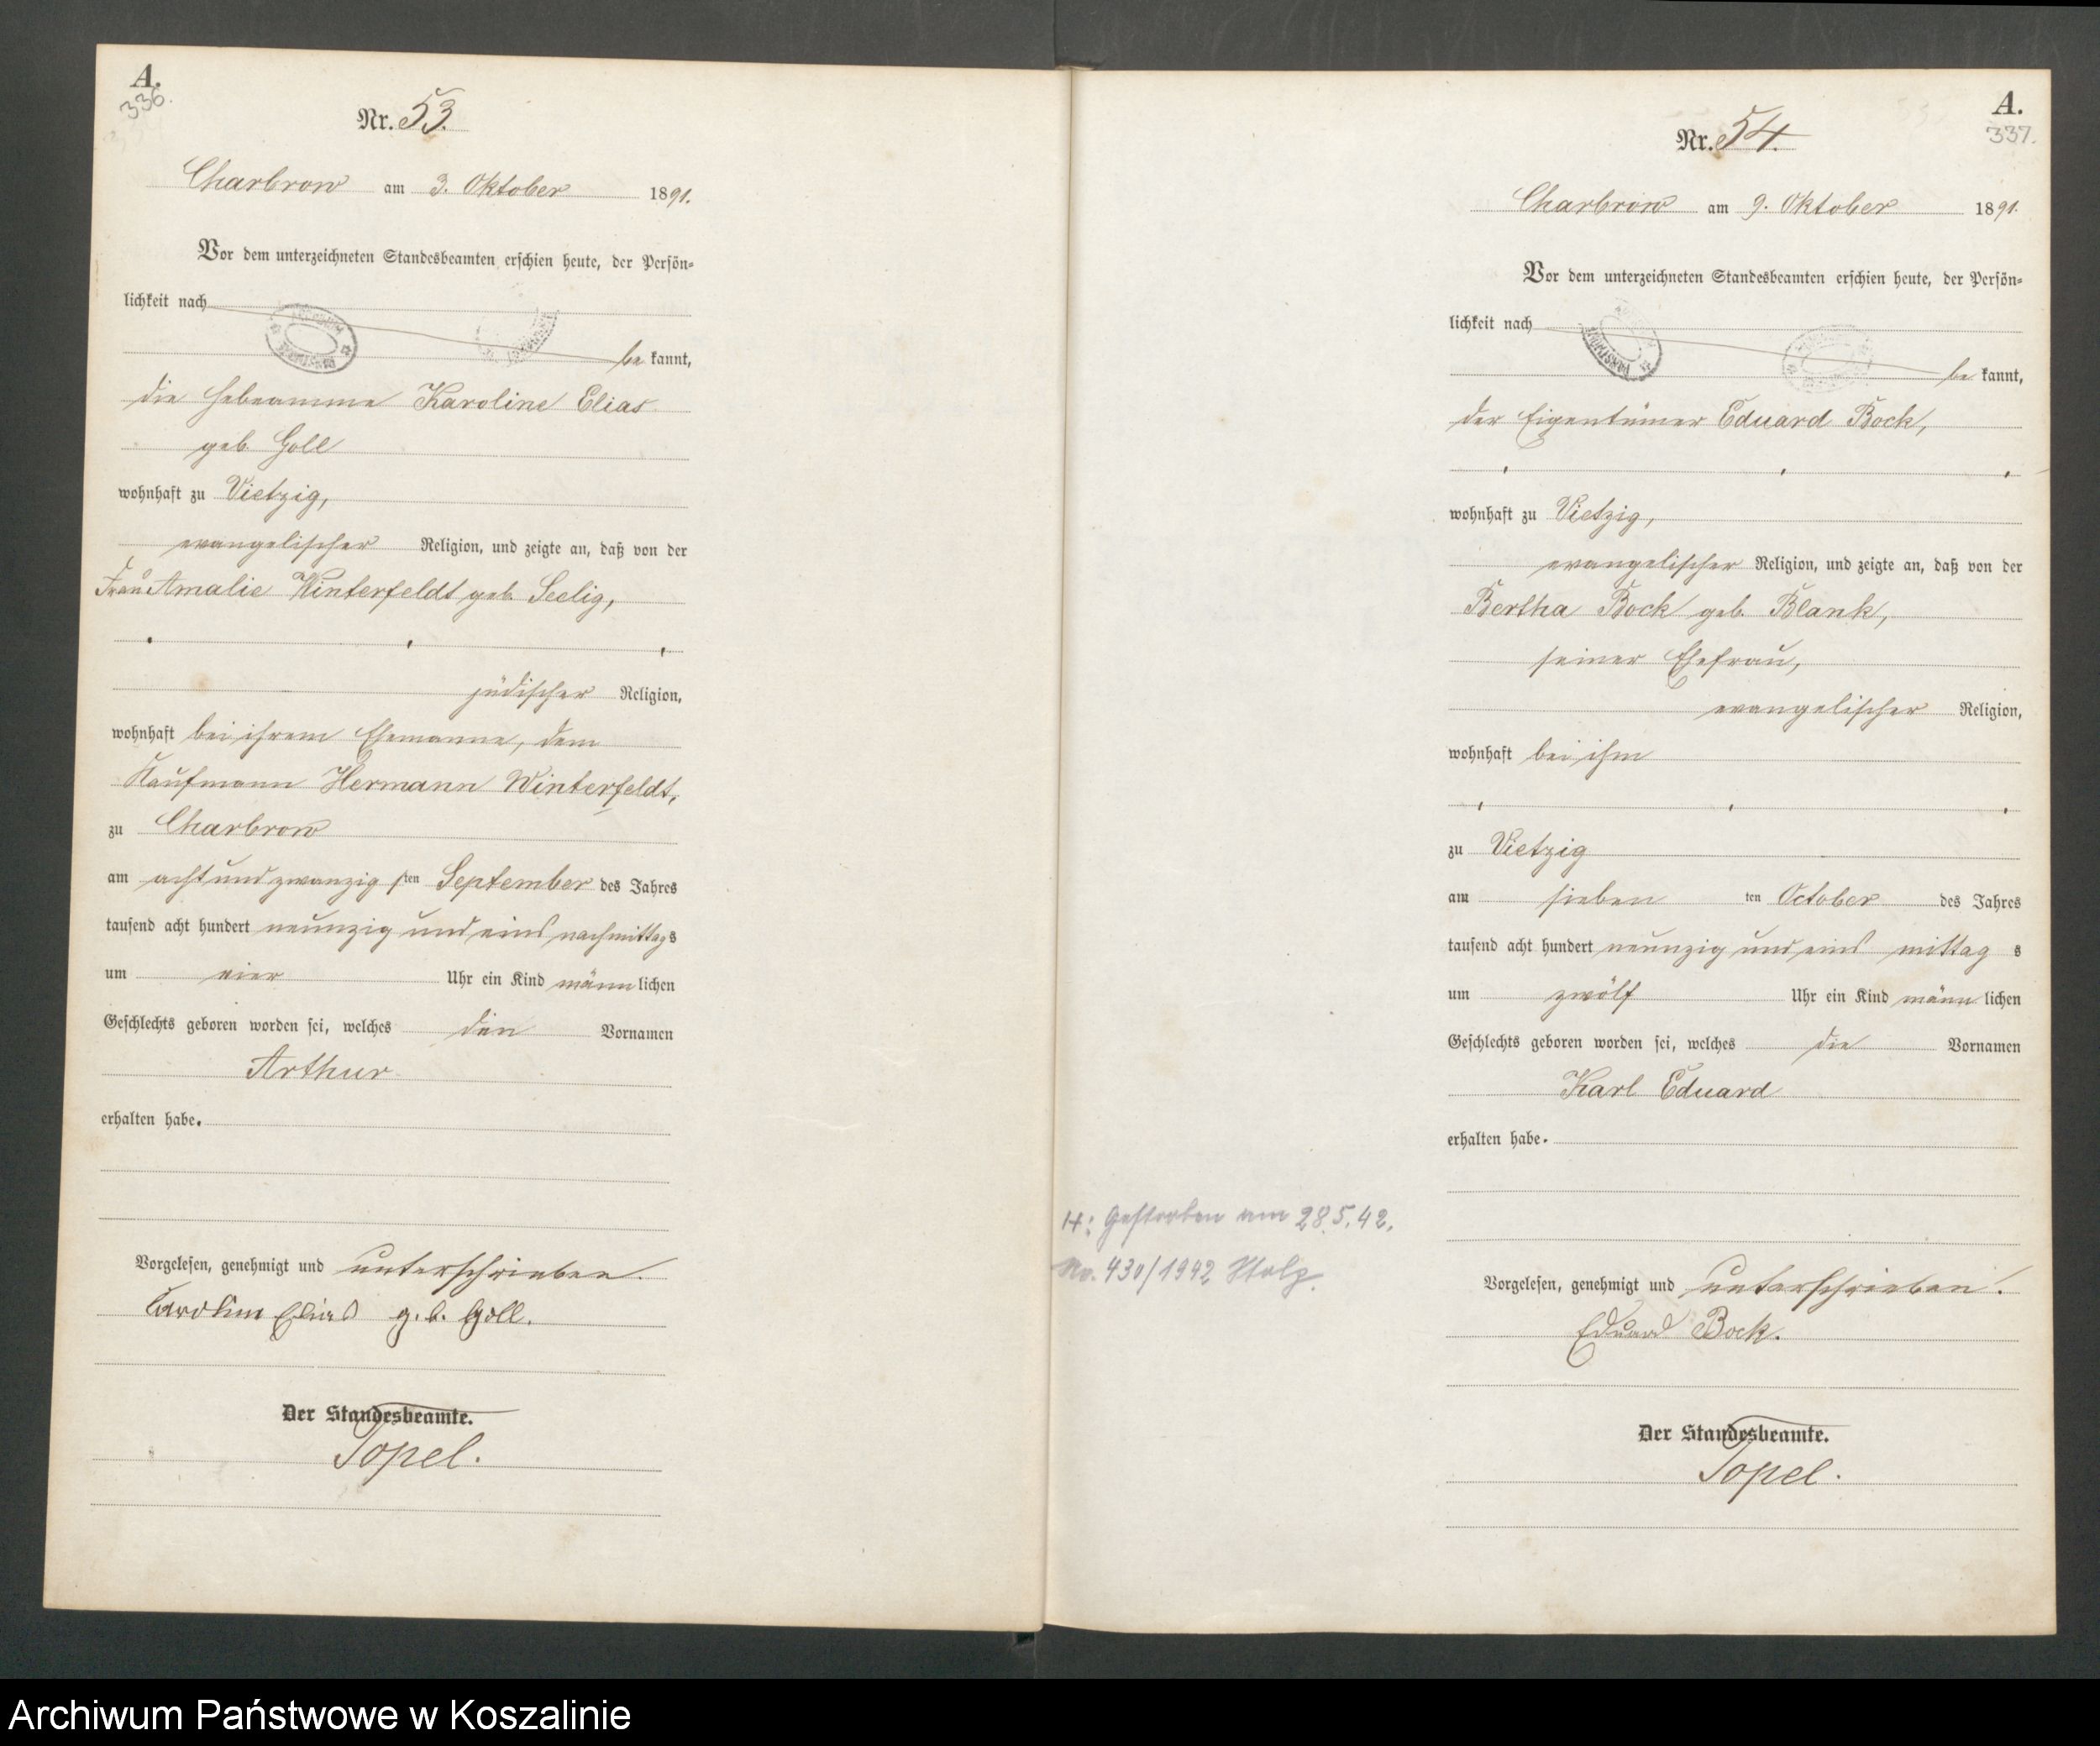 A.
336.
Nr. 53.
Charbrow am 3. Oktober 1891.
Vor dem unterzeichneten Standesbeamten erschien heute, der Persön-
lichkeit nach
be kannt,
die Hebeamme Karoline Elias
geb. Goll
wohnhaft zu Vietzig,
evangelischer Religion, und zeigte an, daß von der
Frau Amalie Winterfeldt geb. Seelig,
jüdischer Religion,
wohnhaft bei ihrem Ehemanne, dem
Kaufmann Hermann Winterfeldt,
zu Charbrow
am acht und zwanzig sten September des Jahres
tausend acht hundert neunzig und eins nachmittags
um vier Uhr ein Kind männ lichen
Geschlechts geboren worden sei, welches den Vornamen
Arthur
erhalten habe.
Vorgelesen, genehmigt und unterschrieben.
Karoline Elias g. b. Goll.
Der Standesbeamte.
Topel.
A.
337.
Nr. 54.
Charbrow am 9. Oktober 1891.
Vor dem unterzeichneten Standesbeamten erschien heute, der Persön-
lichkeit nach
be kannt,
der Eigentümer Eduard Bock,
wohnhaft zu Vietzig,
evangelischer Religion, und zeigte an, daß von der
Bertha Bock geb. Blank,
seiner Ehefrau,
evangelischer Religion,
wohnhaft bei ihm
zu Vietzig
am sieben ten October des Jahres
tausend acht hundert neunzig und eins mittag s
um zwölf Uhr ein Kind männ lichen
Geschlechts geboren worden sei, welches die Vornamen
Karl Eduard
erhalten habe.
H: Gestorben am 28.5.42.
No. 430/1942 Stolp.
Vorgelesen, genehmigt und unterschrieben.
Eduard Bock.
Der Standesbeamte.
Topel.
Archiwum Państwowe w Koszalinie